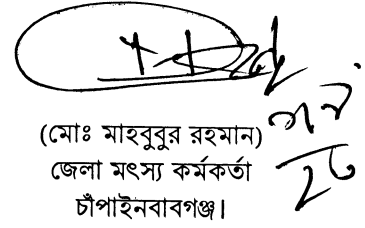 (মোঃ মাহবুবুর রহমান)
জেলা মৎস্য কর্মকর্তা
চাঁপাইনবাবগঞ্জ।